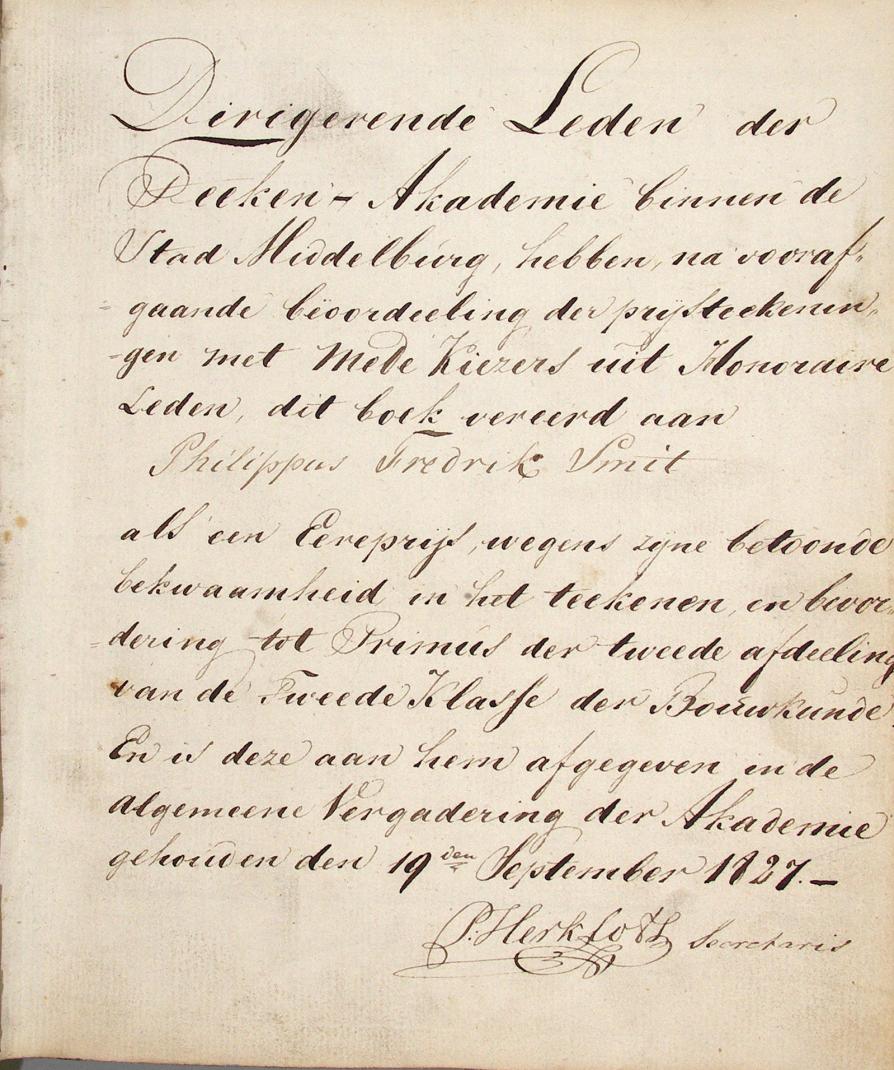 Dirigerende Leden der
Teeken - Akademie binnen de
Stad Middelburg, hebben, na vooraf„
„gaande beoordeeling der prijsteekenin„
„gen met Mede Kiezers uit Honoraire
Leden, dit boek vereerd aan
Philippus Fredrik Smit
als een Eereprijs, wegens zyne betoonde
bekwaamheid in het teekenen, en bevor„
„dering tot Primus der tweede afdeeling
van de Tweede Klasse der Bouwkunde.
En is deze aan hem afgegeven in de
algemeene Vergadering der Akademie
gehouden den 19den September 1827. —
Secretaris